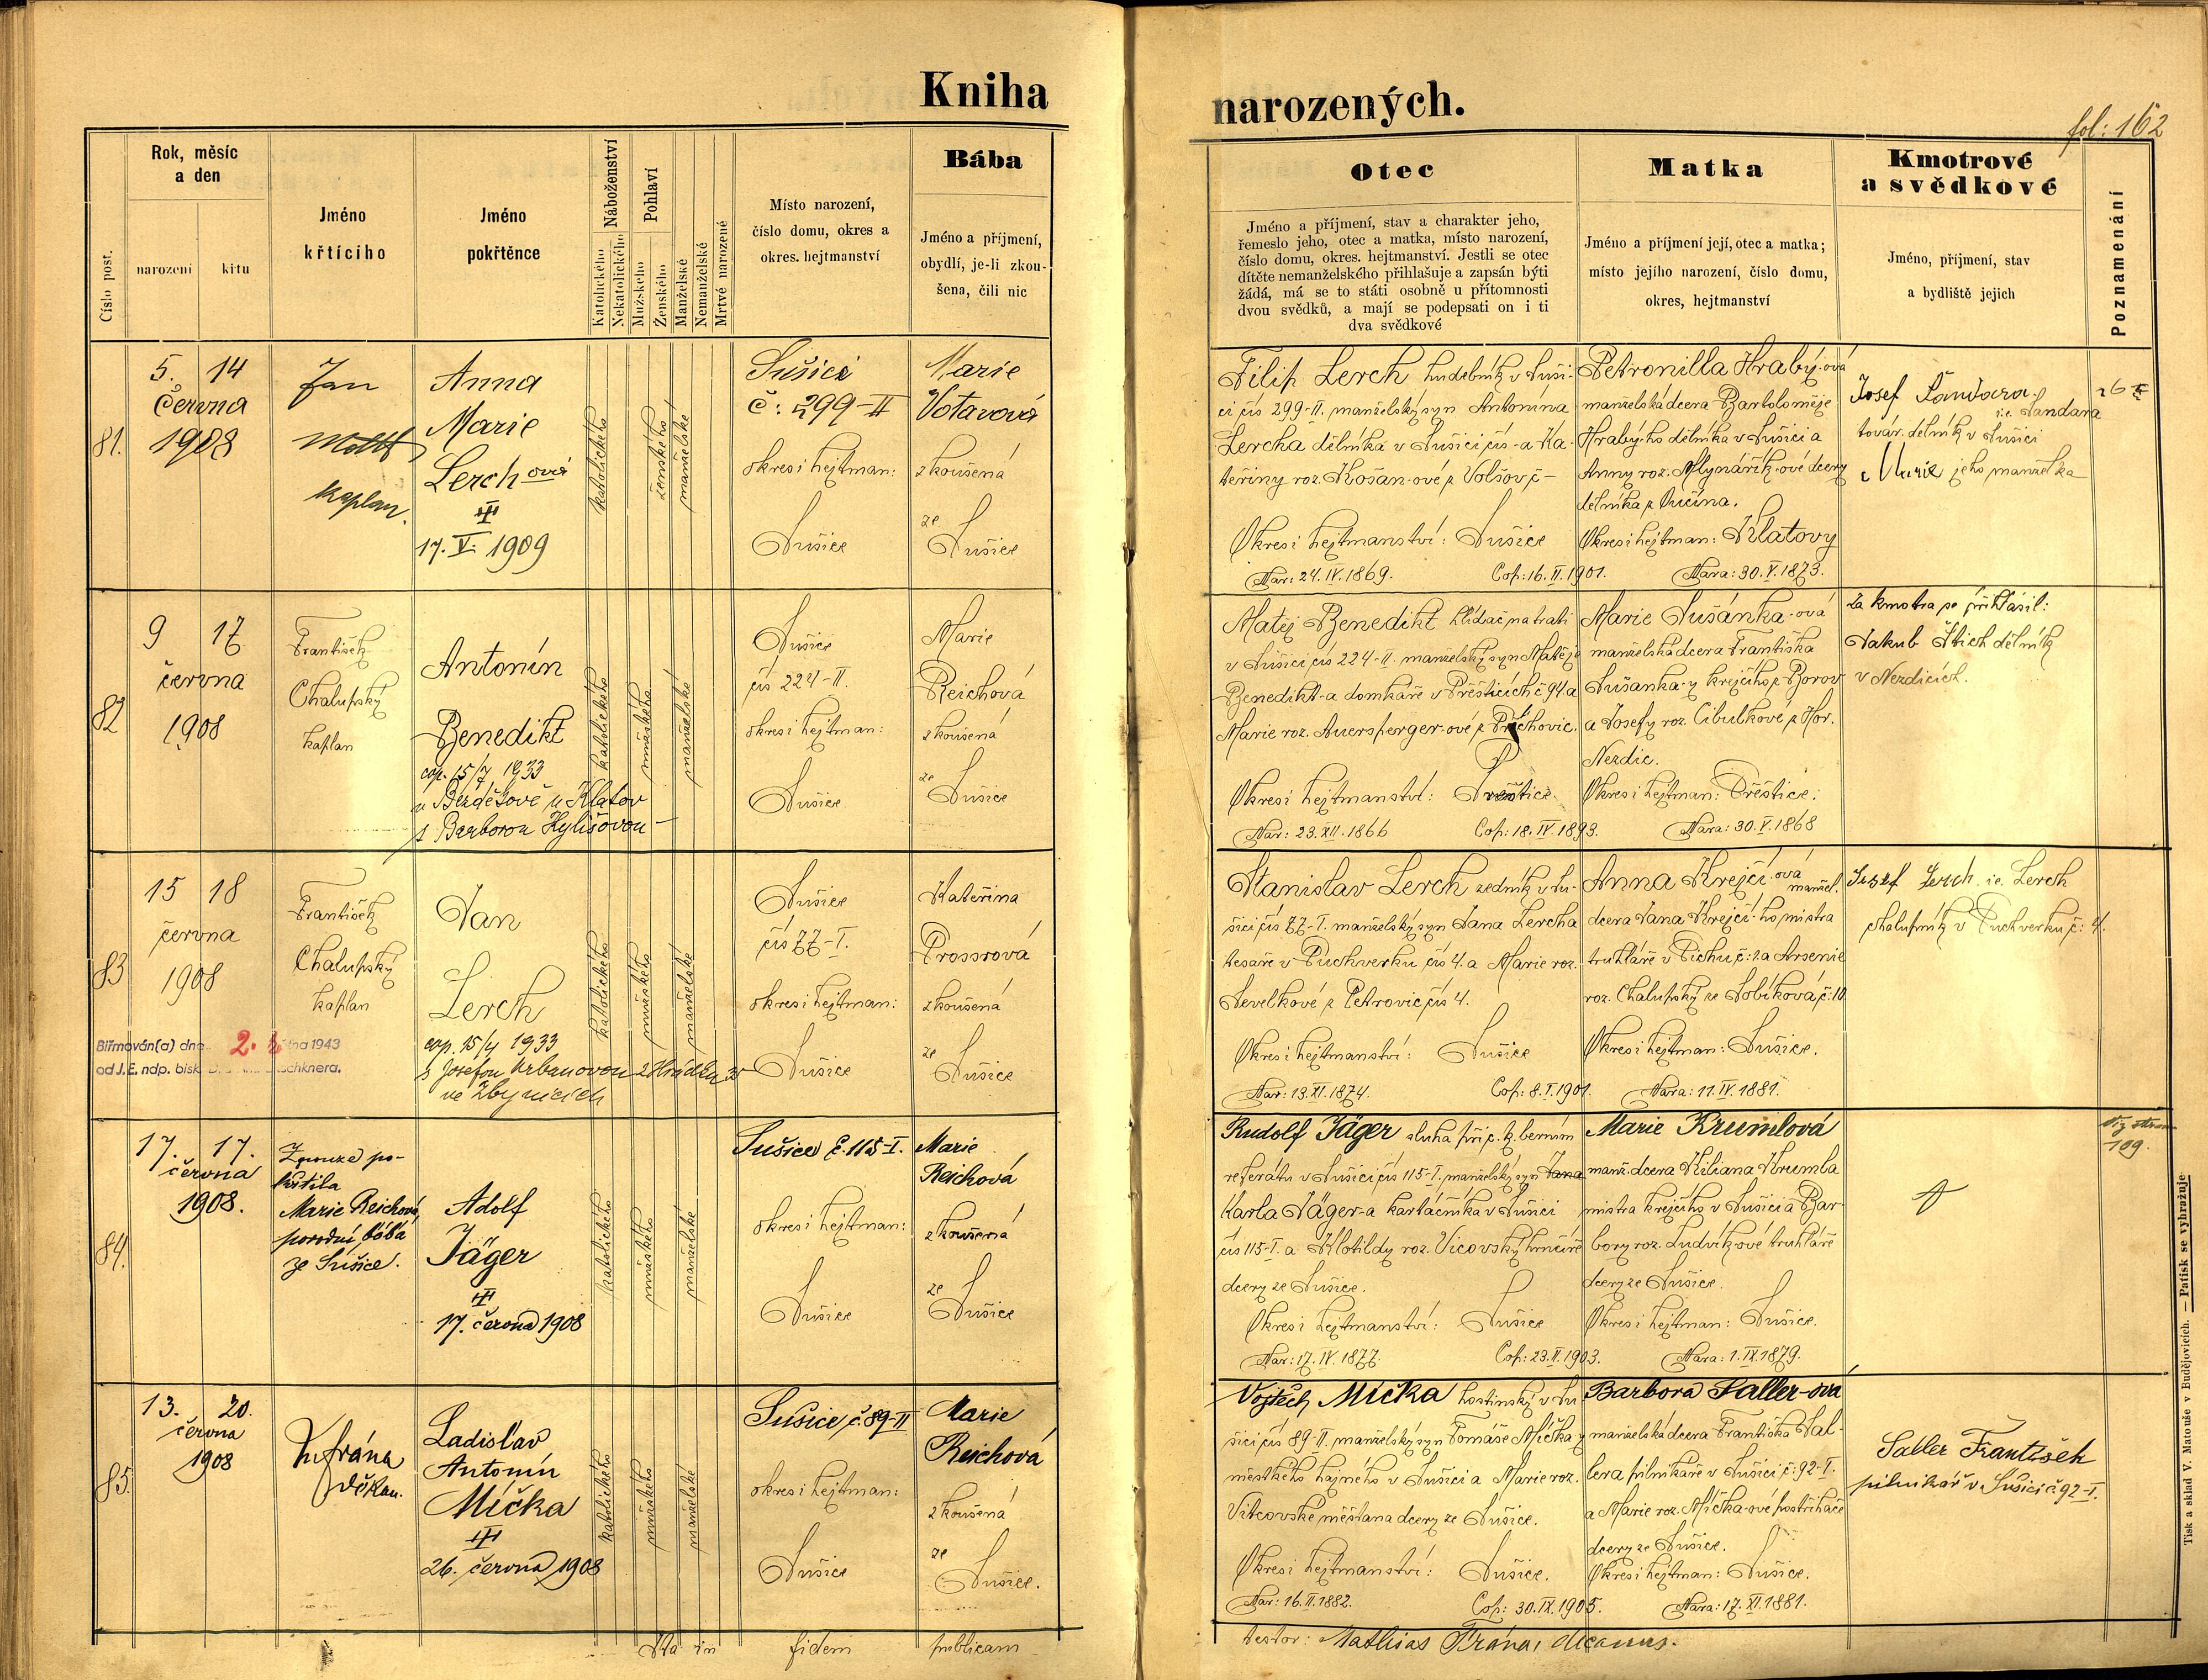 Kniha
narozených.
fol: 162
Číslo post.
Rok, měsíc
a den
narození
křtu
Jméno
křtícího
Jméno
pokřtěnce
Náboženství
Katolického
Nekatolického
Pohlaví
Mužského
Ženského
Manželské
Nemanželské
Mrtvé narozené
Místo narození,
číslo domu, okres a
okres. hejtmanství
Bába
Jméno a příjmení,
obydlí, je-li zkou-
šena, čili nic
Otec
Jméno a příjmení, stav a charakter jeho,
řemeslo jeho, otec a matka, místo narození,
číslo domu, okres. hejtmanství. Jestli se otec
dítěte nemanželského přihlašuje a zapsán býti
žádá, má se to státi osobně u přítomnosti
dvou svědků, a mají se podepsati on i ti
dva svědkové
Matka
Jméno a příjmení její, otec a matka;
místo jejího narození, číslo domu,
okres, hejtmanství
Kmotrové
a svědkové
Jméno, příjmení, stav
a bydliště jejich
Poznamenání
81.
5. 14
června
1908
Jan
kaplan.
Anna
Marie
Lerchová
17. V. 1909
katolického
ženského
manželské
Sušici
č: 299-II
okres i hejtman:
Sušice
Marie
Votavová
zkoušená
ze
Sušice
Filip Lerch hudebník v Suši-
ci čís 299-II. manželský syn Antonína
Lercha dělníka v Sušici čís - a Ka-
teřiny roz. Košan-ové z Volšov č -
Okres i hejtmanství: Sušice
Nar: 24. IV. 1869. Cop: 16. II. 1901.
Petronilla Hrabý-ová
manželská dcera Bartoloměje
Hrabý-ho dělníka v Sušici a
Anny roz. Mlynářík-ové dcery
dělníka z Lučína.
Okres i hejtman: Klatovy
Nara: 30. V. 1873.
Josef Šandara
i.e. Šandara
továr. dělník v Sušici
a Marie jeho manželka
82
9 17
června
1908
František
Chalupský
kaplan
Antonín
Benedikt
cop. 15/7 1933
v Bezděkově u Klatov
s Barborou Hylišovou
katolického
mužského
manželské
Sušice
čís 224-II.
okres i hejtman:
Sušice
Marie
Reichová
zkoušená
ze
Sušice
Matěj Benedikt hlídač na trati
v Sušici čís 224-II. manželský syn Matěje
Benedikt-a domkáře v Přešticích č 94. a
Marie roz. Auersperger-ové z Příchovic.
Okres i hejtmanství: Přeštice.
Nar: 23. XII. 1866 Cop: 18. IV. 1893.
Marie Sušánka-ová
manželská dcera Františka
Sušanka-y krejčího z Borov
a Josefy roz. Cibulkové z Hor.
Nezdic.
Okres i hejtman: Přeštice.
Nara: 30. V. 1868
Za kmotra se přihlásil:
Jakub Štich dělník
v Nezdicích.
83
15 18
června
1908
František
Chalupský
kaplan
Biřmován(a) dne 2. 1943
od J. E. ndp. bisk
Jan
Lerch
cop. 15/4 1933
s Josefou Urbanovou z Hrádku 35
ve Zbynicích
katolického
mužského
manželské
Sušice
čís 77-I.
okres i hejtman:
Sušice
Kateřina
Prossrová
zkoušená
ze
Sušice
Stanislav Lerch zedník v Su-
šici čís 77-I. manželský syn Jana Lercha
tesaře v Puchverku čís 4. a Marie roz.
Sevelkové z Petrovic čís 4.
Okres i hejtmanství: Sušice
Nar: 13. XI. 1874. Cop: 8. I. 1901.
Anna Krejčí-ová
manžel.
dcera Jana Krejčí-ho mistra
truhláře v Pichu č: 2. a Arsenie
roz. Chalupský ze Sobíková č: 10
Okres i hejtman: Sušice.
Nara: 11. IV. 1881.
Josef Lerch i.e. Lerch
chalupník v Puchverku č: 4.
84.
17. 17.
června
1908.
Z nouze po-
křtila
Marie Reichová
porodní bába
ze Sušice.
Adolf
Jäger
17. června 1908
katolického
mužského
manželské
Sušice č. 115-I.
okres i hejtman:
Sušice
Marie
Reichová
zkoušená
ze
Sušice
Rudolf Jäger sluha při c. k. berním
referátu v Sušici čís 115-I. manželský syn Jana
Karla Jäger-a kartáčníka v Sušici
čís 115-I. a Klotildy roz. Vicovský hrnčíře
dcery ze Sušice.
Okres i hejtmanství: Sušice
Nar: 17. IV. 1877. Cop: 23. II. 1903.
Marie Krumlová
manž. dcera Kiliana Krumla
mistra krejčího v Sušici a Bar-
bory roz. Ludvík-ové truhláře
dcery ze Sušice.
Okres i hejtman: Sušice.
Nara: 1. IX. 1879.
109.
85.
13. 20.
června
1908
děkan.
Ladislav
Antonín
Míčka
26. června 1908
katolického
mužského
manželské
Sušice č. 89-II
okres i hejtman:
Sušice
Marie
Reichová
zkoušená
ze
Sušice.
Vojtěch Míčka hostinský v Su-
šici čís 89-II. manželský syn Tomáše Míčka-y
městkého hajného v Sušici a Marie roz.
Vitcovské měšťana dcery ze Sušice.
Okres i hejtmanství: Sušice.
Nar: 16. II. 1882. Cop: 30. IX. 1905.
Barbora Saller-ová
manželská dcera Františka Sal-
lera pilnikáře v Sušici č: 92-I.
a Marie roz. Míčka-ové postřihače
dcery ze Sušice.
Okres i hejtman: Sušice.
Nara: 17. XI. 1881.
Saller Frantzšek
pilnikář v Sušici č 92-I.
Ita in fidem publicam
testor: Mathias Frána, decanus.
Tisk a sklad V. Matouše v Budějovicích. — Patisk se vyhražuje